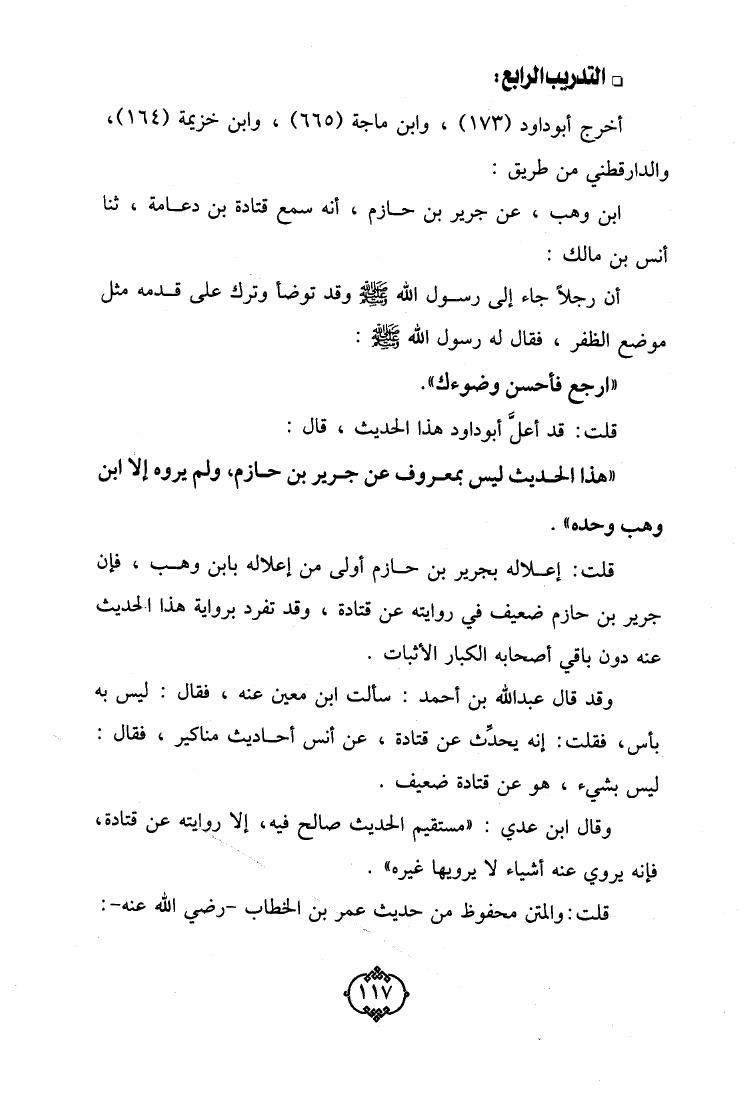 □ التدريب الرابع:
أخرج أبوداود (١٧٣) ، وابن ماجة (٦٦٥) ، وابن خزيمة (١٦٤)،
والدارقطني من طريق :
ابن وهب ، عن جرير بن حـازم ، أنه سمع قتادة بن دعـامة ، ثنا
أنس بن مالك :
أن رجلاً جاء إلى رسـول الله ﷺ وقد توضأ وترك على قـدمه مثل
موضع الظفر ، فقال له رسول الله ﷺ :
«ارجع فأحسن وضوءك».
قلت: قد أعلَّ أبوداود هذا الحديث ، قال :
«هذا الحـديث ليس بمعـروف عن جـرير بن حـازم، ولم يروه إلا ابن
وهب وحده» .
قلت: إعـلاله بجرير بن حـازم أولى من إعلاله بابن وهـب ، فإن
جرير بن حازم ضعيف في روايته عن قتادة ، وقد تفرد برواية هذا الحديث
عنه دون باقي أصحابه الكبار الأثبات .
وقد قال عبدالله بن أحمد : سألت ابن معين عنه ، فقال : ليس به
بأس، فقلت: إنه يحدِّث عن قتادة ، عن أنس أحـاديث مناكير ، فقال :
ليس بشيء ، هو عن قتادة ضعيف .
وقال ابن عدي : «مستقيم الحديث صالح فيه، إلا روايته عن قتادة،
فإنه يروي عنه أشياء لا يرويها غيره» .
قلت: والمتن محفوظ من حديث عمر بن الخطاب -رضي الله عنه-:
١١٧